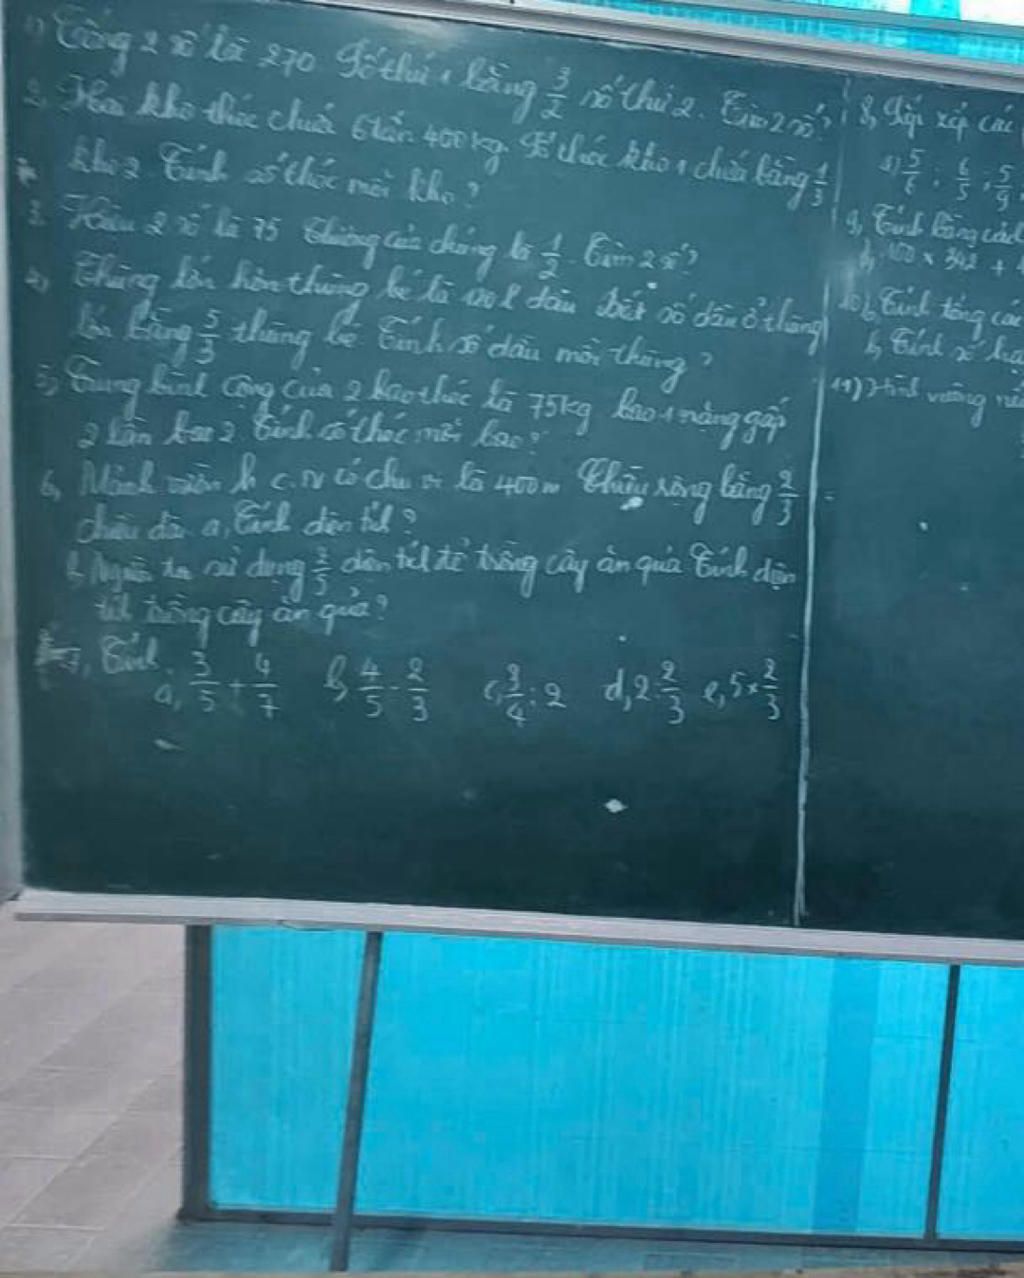 1) Tổng 2 số là 270 Số thứ 1 bằng 3/2 số thứ 2. Tìm 2 số?
2, Hai kho thóc chứa 6 tấn 400 kg. Số thóc kho 1 chứa bằng 1/3
kho 2 Tính số thóc mỗi kho?
3. Hiệu 2 số là 75 Thương của chúng là 1/2. Tìm 2 số?
4, Thùng lớn hơn thùng bé là 120 l dầu biết số dầu ở thùng
lớn bằng 5/3 thùng bé. Tính số dầu mỗi thùng?
5, Trung bình cộng của 2 bao thóc là 75kg bao 1 nặng gấp
2 lần bao 2. Tính số thóc mỗi bao?
6, Mảnh vườn h c.n có chu vi là 400m Chiều rộng bằng 2/3
chiều dài a, Tính diện tích?
b Người ta sử dụng 2/5 diện tích để trồng cây ăn quả Tính diện
tích trồng cây ăn quả?
7, Tính
a, 3/5 + 4/7 b, 4/5 - 2/3 c, 3/4 : 2 d, 2 : 2/3 e, 5 × 2/3
8, Sắp xếp các
a) 5/6 ; 6/5 ; 5/9
9, Tính bằng cách
× 342 +
10, Tính tổng các
b, Tính số
11) Hình vuông